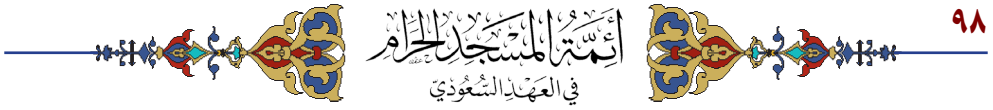 ٩٨
أَئِمَّةُ المَسْجِدِ الحَرَامِ
فِي العَهْدِ السُّعُودِيِّ